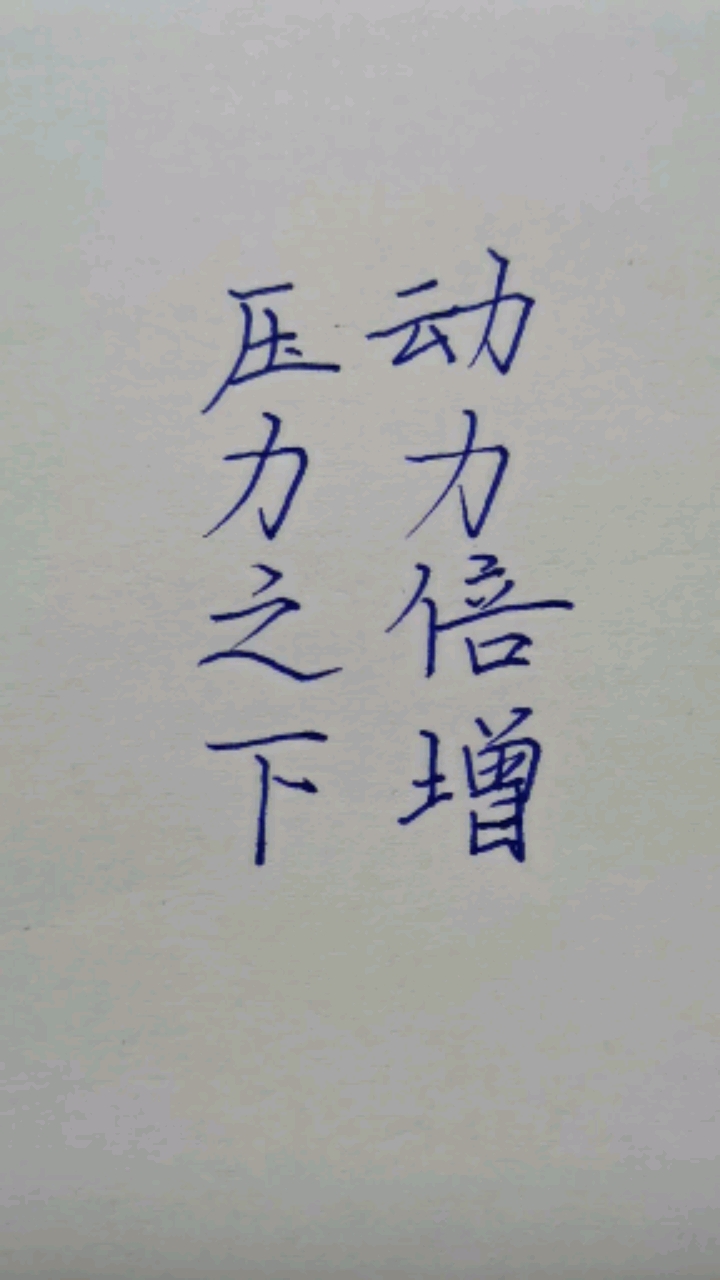 压力之下
动力倍增